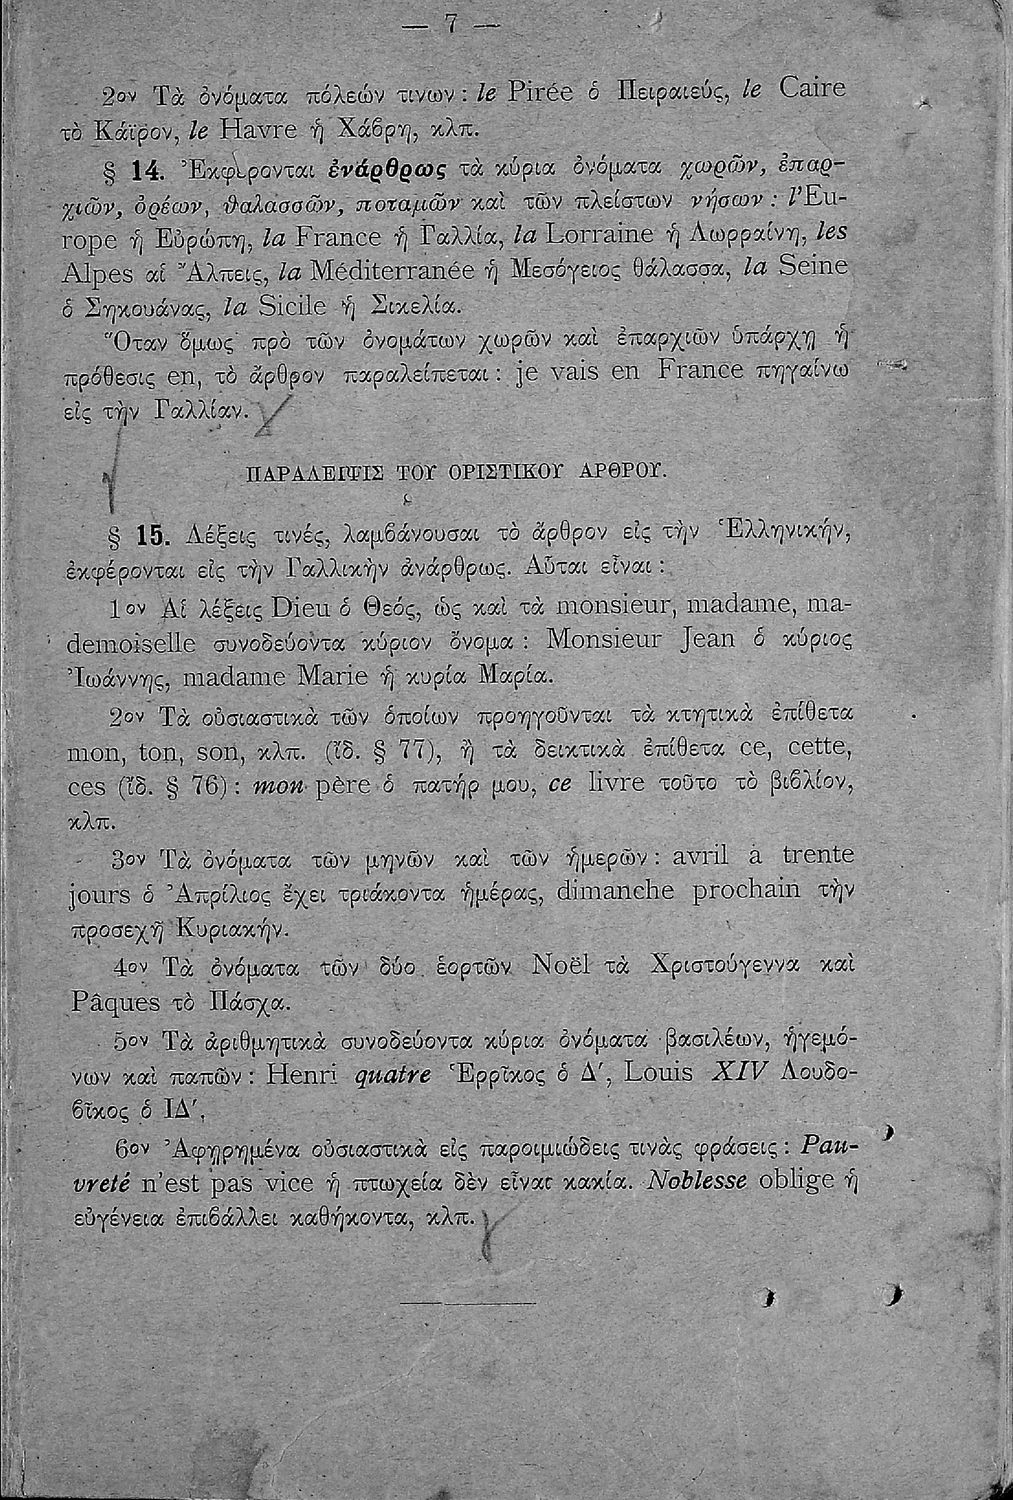 — 7 —
2ον Τὰ ὀνόματα πόλεών τινων : le Pirée ὁ Πειραιεύς, le Caire
τὸ Κάϊρον, le Havre ἡ Χάβρη, κλπ.
§ 14. Ἐκφέρονται ἐνάρθρως τὰ κύρια ὀνόματα χωρῶν, ἐπαρ-
χιῶν, ὀρέων, θαλασσῶν, ποταμῶν καὶ τῶν πλείστων νήσων : l'Eu-
rope ἡ Εὐρώπη, la France ἡ Γαλλία, la Lorraine ἡ Λωρραίνη, les
Alpes αἱ Ἄλπεις, la Méditerranée ἡ Μεσόγειος θάλασσα, la Seine
ὁ Σηκουάνας, la Sicile ἡ Σικελία.
Ὅταν ὅμως πρὸ τῶν ὀνομάτων χωρῶν καὶ ἐπαρχιῶν ὑπάρχῃ ἡ
πρόθεσις en, τὸ ἄρθρον παραλείπεται : je vais en France πηγαίνω
εἰς τὴν Γαλλίαν.
ΠΑΡΑΛΕΙΨΙΣ ΤΟΥ ΟΡΙΣΤΙΚΟΥ ΑΡΘΡΟΥ.
§ 15. Λέξεις τινές, λαμβάνουσαι τὸ ἄρθρον εἰς τὴν Ἑλληνικήν,
ἐκφέρονται εἰς τὴν Γαλλικὴν ἀνάρθρως. Αὗται εἶναι :
1ον Αἱ λέξεις Dieu ὁ Θεός, ὡς καὶ τὰ monsieur, madame, ma-
demoiselle συνοδεύοντα κύριον ὄνομα : Monsieur Jean ὁ κύριος
Ἰωάννης, madame Marie ἡ κυρία Μαρία.
2ον Τὰ οὐσιαστικὰ τῶν ὁποίων προηγοῦνται τὰ κτητικὰ ἐπίθετα
mon, ton, son, κλπ. (ἴδ. § 77), ἢ τὰ δεικτικὰ ἐπίθετα ce, cette,
ces (ἴδ. § 76) : mon père ὁ πατήρ μου, ce livre τοῦτο τὸ βιβλίον,
κλπ.
3ον Τὰ ὀνόματα τῶν μηνῶν καὶ τῶν ἡμερῶν : avril a trente
jours ὁ Ἀπρίλιος ἔχει τριάκοντα ἡμέρας, dimanche prochain τὴν
προσεχῆ Κυριακήν.
4ον Τὰ ὀνόματα τῶν δύο ἑορτῶν Noël τὰ Χριστούγεννα καὶ
Pâques τὸ Πάσχα.
5ον Τὰ ἀριθμητικὰ συνοδεύοντα κύρια ὀνόματα βασιλέων, ἡγεμό-
νων καὶ παπῶν : Henri quatre Ἑρρῖκος ὁ Δ', Louis XIV Λουδο-
βῖκος ὁ ΙΔ'.
6ον Ἀφῃρημένα οὐσιαστικὰ εἰς παροιμιώδεις τινὰς φράσεις : Pau-
vreté n'est pas vice ἡ πτωχεία δὲν εἶναι κακία. Noblesse oblige ἡ
εὐγένεια ἐπιβάλλει καθήκοντα, κλπ.